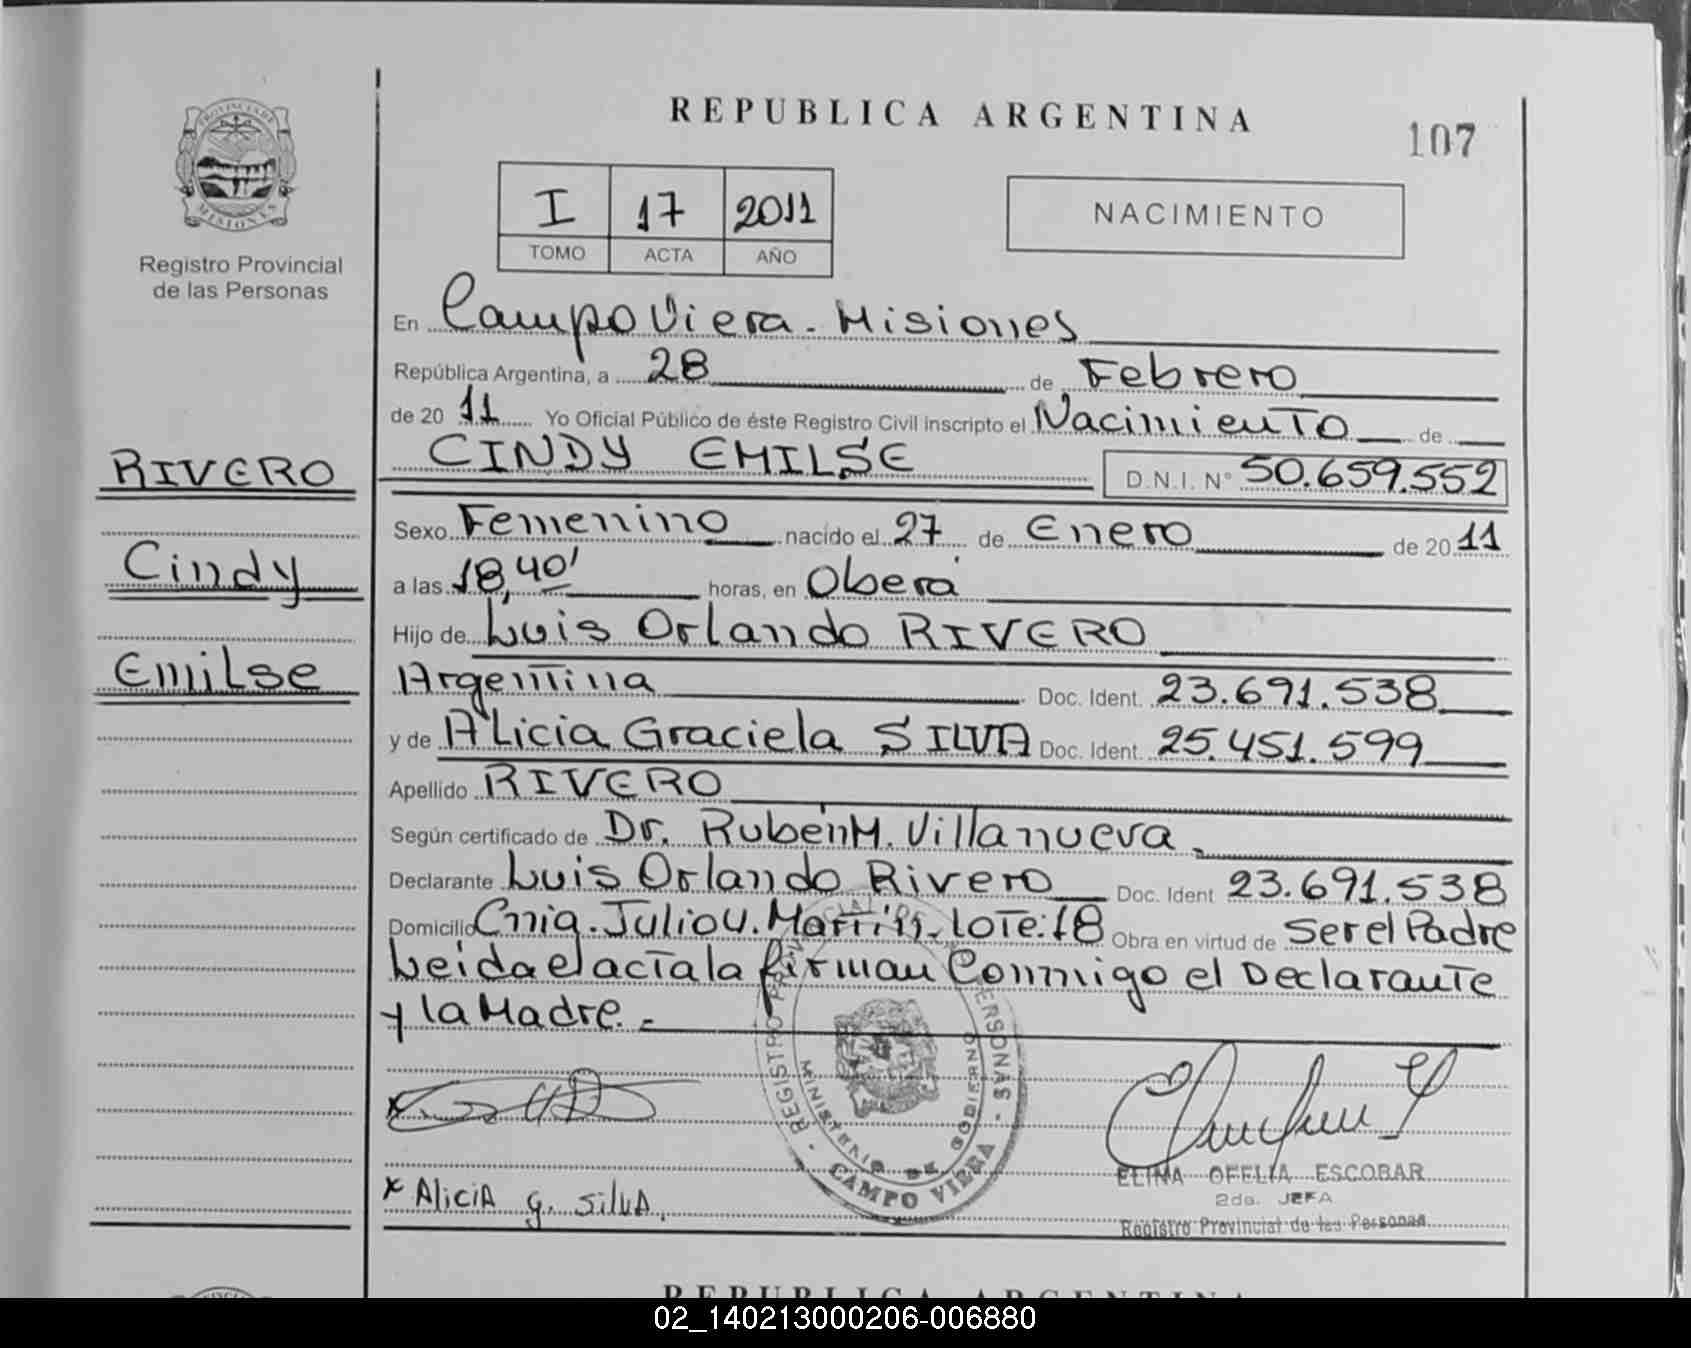 REPUBLICA ARGENTINA
107
PROVINCIA DE
MISIONES
Registro Provincial
de las Personas
I 17 2011
TOMO ACTA AÑO
NACIMIENTO
En Campo Viera - Misiones
República Argentina, a 28 de Febrero
de 20 11 Yo Oficial Público de éste Registro Civil inscripto el Nacimiento de
CINDY EMILSE D.N.I. N° 50.659.552
RIVERO
Cindy
Emilse
Sexo Femenino nacido el 27 de Enero de 20 11
a las 18,40' horas, en Oberá
Hijo de Luis Orlando RIVERO
Argentina Doc. Ident. 23.691.538
y de Alicia Graciela SILVA Doc. Ident. 25.451.599
Apellido RIVERO
Según certificado de Dr. Rubén M. Villanueva.
Declarante Luis Orlando Rivero Doc. Ident 23.691.538
Domicilio Julio U. Martin. Lote: 18 Obra en virtud de Ser el Padre
Leida el acta la firman Conmigo el Declarante
y la Madre.-
REGISTRO PROVINCIAL DE LAS PERSONAS
MINISTERIO DE GOBIERNO
CAMPO VIERA
x
ELINA OFELIA ESCOBAR
2da. JEFA
Registro Provincial de las Personas
x Alicia g. Silva.
REPUBLICA ARGENTINA
02_140213000206-006880